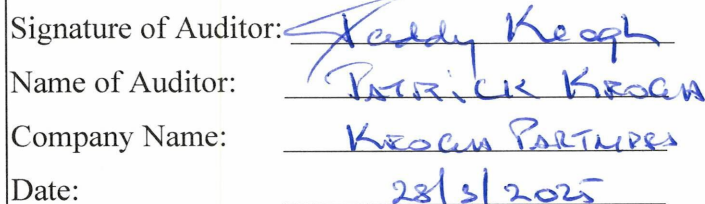 Signature of Auditor: Paddy Keogh
Name of Auditor: PATRICK KEOGH
Company Name: KEOGH PARTNERS
Date: 28/3/2025